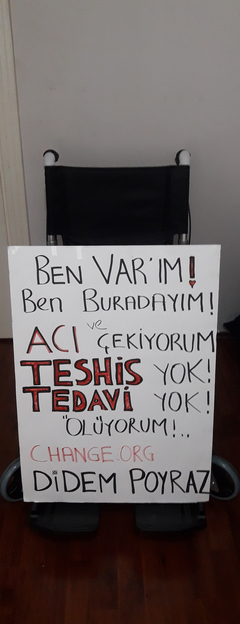 BEN VAR'IM!
Ben BURADAYIM!
ACI ve ÇEKİYORUM
TESHİS YOK!
TEDAVİ YOK!
"ÖLÜYORUM!..
CHANGE.ORG
DİDEM POYRAZ